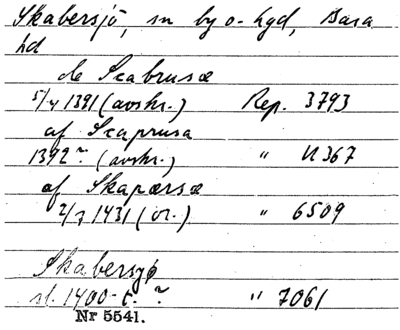 Skabersjö, sn by o. hgd, Bara
hd
de Scabrusæ
5/4 1391 (avskr.) Rep. 3793
af Scaprusa
1392? (avskr.) " N 367
af Skapærsæ
2/7 1431 (or.) " 6509
Skabersyø
sl. 1400-t.? " 7061
Nr 5541.